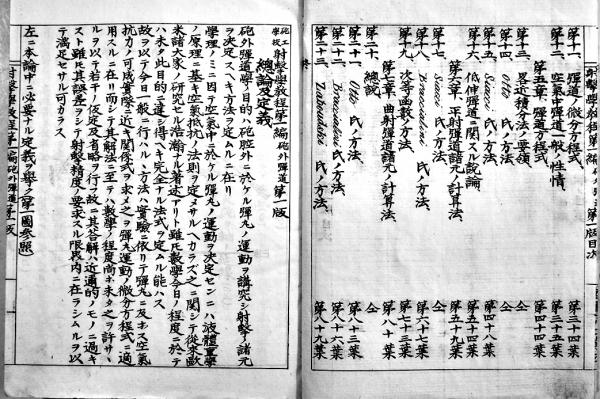 射擊學教程第一編砲外彈道第一版目次
第十一、彈道ノ微分方程式 第三十四葉
第十二、空氣中彈道一般ノ性情 第三十五葉
第五章、彈道方程式 第四十四葉
第十三、畧近積分法ノ要領 仝
第十四、Otto 氏ノ方法 仝
第十五、Siacci 氏ノ方法 第四十八葉
低伸彈道ニ関スル說論 第五十四葉
第六章、平射彈道諸元ノ計算法 第五十九葉
第十七、Siacci 氏ノ方法 仝
第十八、Braccialini 氏ノ方法 第六十七葉
第十九、次等函數ノ方法 第七十三葉
第七章、曲射彈道諸元ノ計算法 第八十葉
第二十、總說 仝
第二十一、Otto 氏ノ方法 第八十三葉
第二十二、Braccialini 氏ノ方法 第八十六葉
第二十三、Zaboudski 氏ノ方法 第八十九葉
終
砲工學校 射擊學教程第一編砲外彈道 第一版
總論及定義
砲外彈道學ノ目的ハ砲腔外ニ於ケル彈丸ノ運動ヲ講究シ射擊ノ諸元
ヲ決定スヘキ方法ヲ定ムルニ在リ
學理ノミニ因テ空氣中ニ於ケル彈丸ノ運動ヲ決定センニハ液體重學
ノ原理ニ基キ空氣抵抗ノ法則ヲ定メサルヘカラズ之ニ関シテ從來歐
米諸大家ノ研究セル浩瀚ナル著述アリト雖氏數學今日ノ程度ニ於テ
ハ未タ此目的ニ達シ得ヘキ完全ナル法式ヲ定ムル能ハス
故ヲ以テ今日一般ニ行ハルヽ方法ハ實驗ニ依リテ彈丸ニ及ホス空氣
抗力ノ可成實際ニ近キ関係式ヲ求メ之ヲ彈丸運動ノ微分方程式ニ適
用スルニ在リ而シテ其解法ニ至テハ數學ノ程度尚ホ未タ之ヲ許サヽ
ルヲ以テ若干ノ仮定及省略ヲ行フ故ニ其答解ハ近邇的ノモノニ過キ
スト雖其誤差ヲシテ射擊精度ノ要求スル限界内ニ在ラシムルヲ以
テ滿足セサル可カラス
左ニ本論中ニ必要ナル定義ヲ擧ク(第一圖參照)
射擊學教程第一編砲外彈道第一版